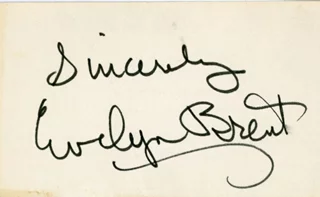 Sincerely
Evelyn Brent